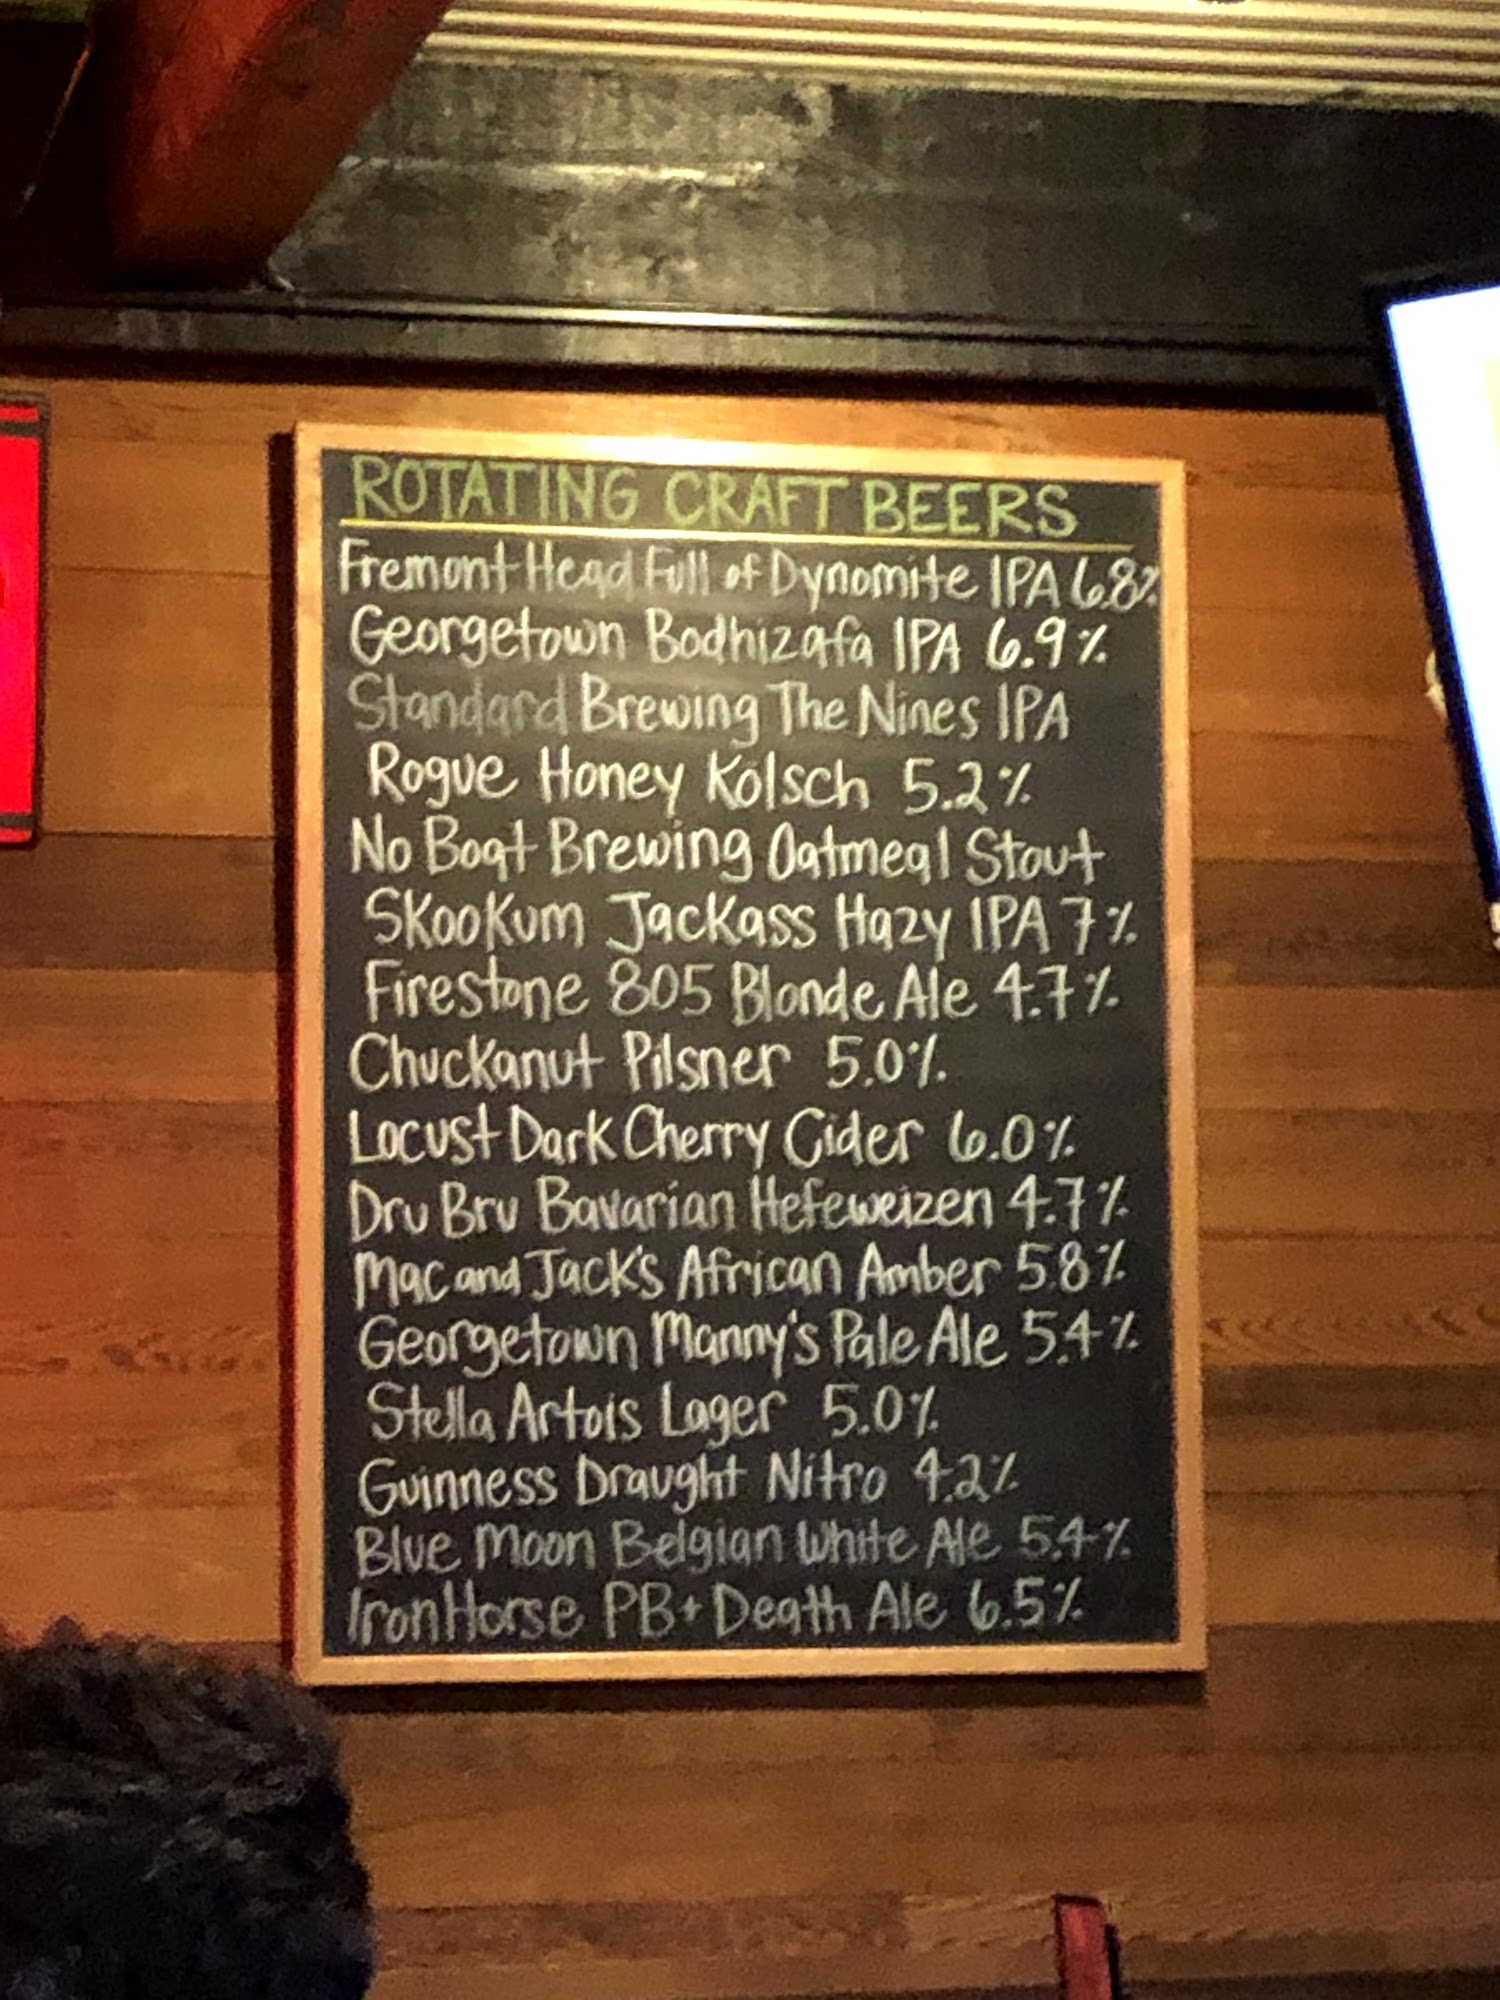 ROTATING CRAFT BEERS
Fremont Head Full of Dynomite IPA 6.8%
Georgetown Bodhizafa IPA 6.9%
Standard Brewing The Nines IPA
Rogue Honey Kölsch 5.2%
No Boat Brewing Oatmeal Stout
Skookum Jackass Hazy IPA 7%
Firestone 805 Blonde Ale 4.7%
Chuckanut Pilsner 5.0%
Locust Dark Cherry Cider 6.0%
Dru Bru Bavarian Hefeweizen 4.7%
Mac and Jack's African Amber 5.8%
Georgetown Manny's Pale Ale 5.4%
Stella Artois Lager 5.0%
Guinness Draught Nitro 4.2%
Blue Moon Belgian White Ale 5.4%
Iron Horse PB+ Death Ale 6.5%